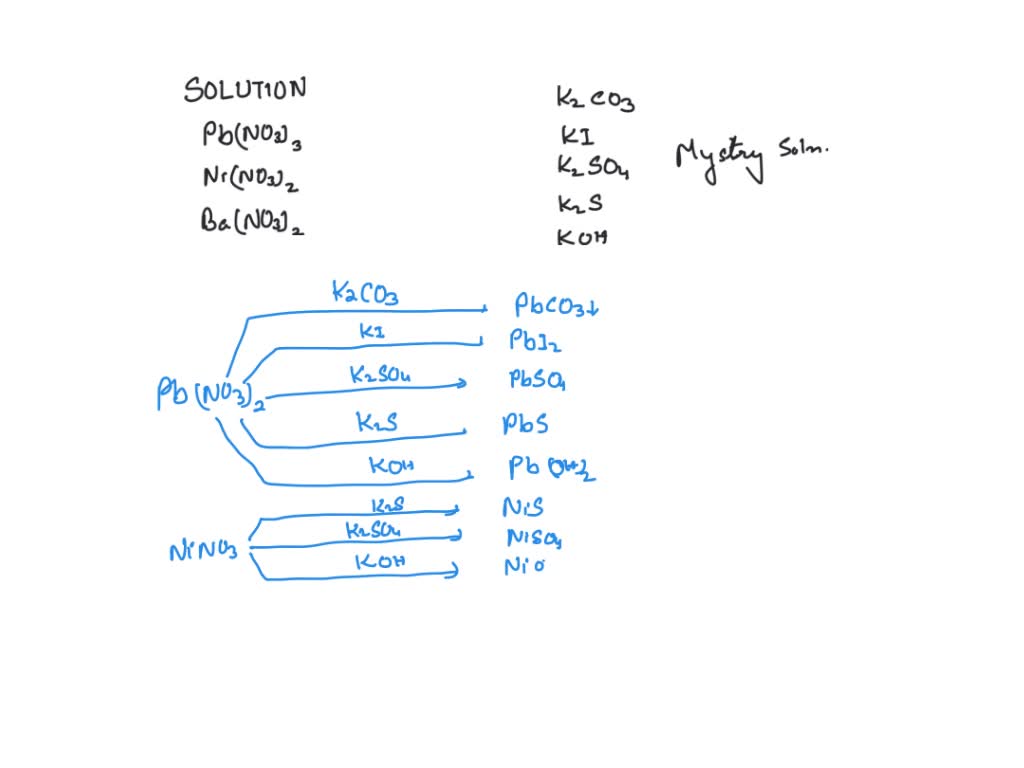 SOLUTION
Pb(NO3)3
Ni(NO3)2
Ba(NO3)2
K2CO3
KI
K2SO4
K2S
KOH
Mystry Soln.
K2CO3 PbCO3↓
KI PbI2
Pb(NO3)2 K2SO4 PbSO4
K2S PbS
KOH Pb(OH)2
K2S NiS
NiNO3 K2SO4 NiSO4
KOH Nio